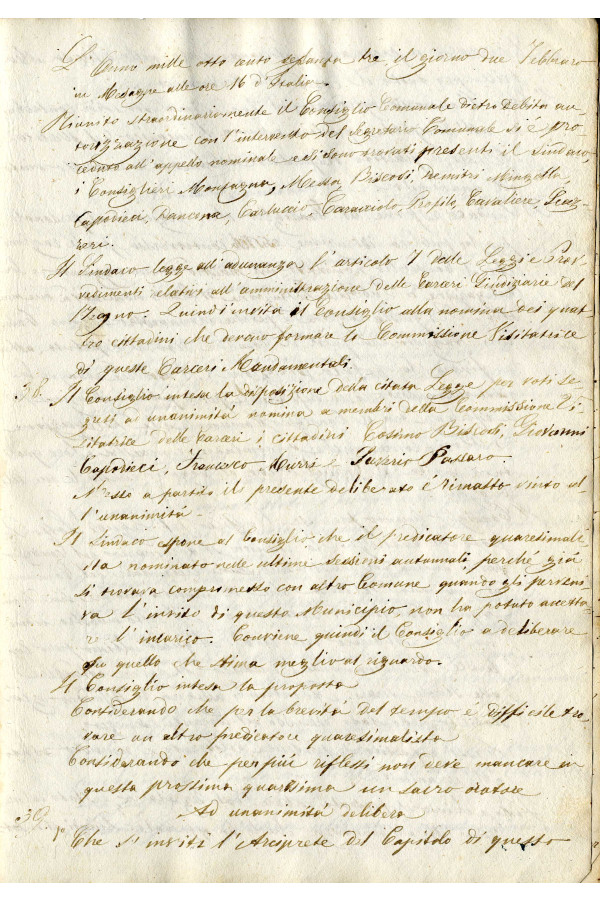 L'Anno mille otto cento sessanta tre il giorno due Febbraro
in Mesagne alle ore 16 d'Italia.
Riunito straordinariamente il Consiglio Comunale dietro debita au-
torizzazione con l'intervento del Segretario Comunale si è pro-
ceduto all'appello nominale e si sono trovati presenti il Sindaco
i Consiglieri Montagna, Messa, Biscosi, Demitri
Capodieci, Dancona, Carluccio, Caracciolo, Profilo, Cavaliere,
Il Sindaco legge all'adunanza l'articolo 1 delle Leggi e Prov-
vedimenti relativi all'amministrazione delle Carceri Giudiziarie del
Regno. Quindi invita il Consiglio alla nomina dei quat-
tro cittadini che devono formare la Commissione Visitatrice
di queste Carceri Mandamentali.
38. Il Consiglio intesa la disposizione della citata Legge per voti se-
greti a unanimità nomina a membri della Commissione Vi-
sitatrice delle Carceri i cittadini Cosimo Biscosi, Giovanni
Capodieci, Francesco Murri e Saverio Passaro.
Messo a partito il presente deliberato è rimasto vinto al-
l'unanimità.
Il Sindaco espone al Consiglio che il predicatore quaresimali-
sta nominato nelle ultime sessioni autunnali, perché già
si trovava compromesso con altro Comune quando gli perveni-
va l'invito di questo Municipio, non ha potuto accetta-
re l'incarico. Conviene quindi il Consiglio a deliberare
quello che stima meglio al riguardo.
Il Consiglio intesa la proposta
Considerando che per la brevità del tempo è difficile tro-
vare un altro predicatore quaresimalista
Considerando che per più riflessi non deve mancare in
questa prossima quaresima un sacro oratore
Ad unanimità delibera
39. 1° Che si inviti l'Arciprete del Capitolo di questo